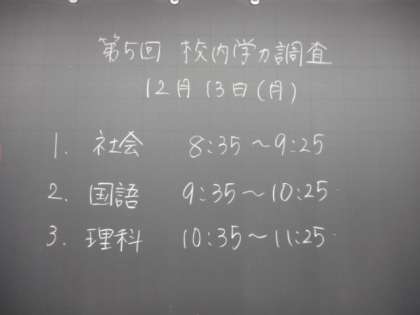 第5回 校内学力調査
12月13日(月)
1. 社会 8:35～9:25
2. 国語 9:35～10:25
3. 理科 10:35～11:25